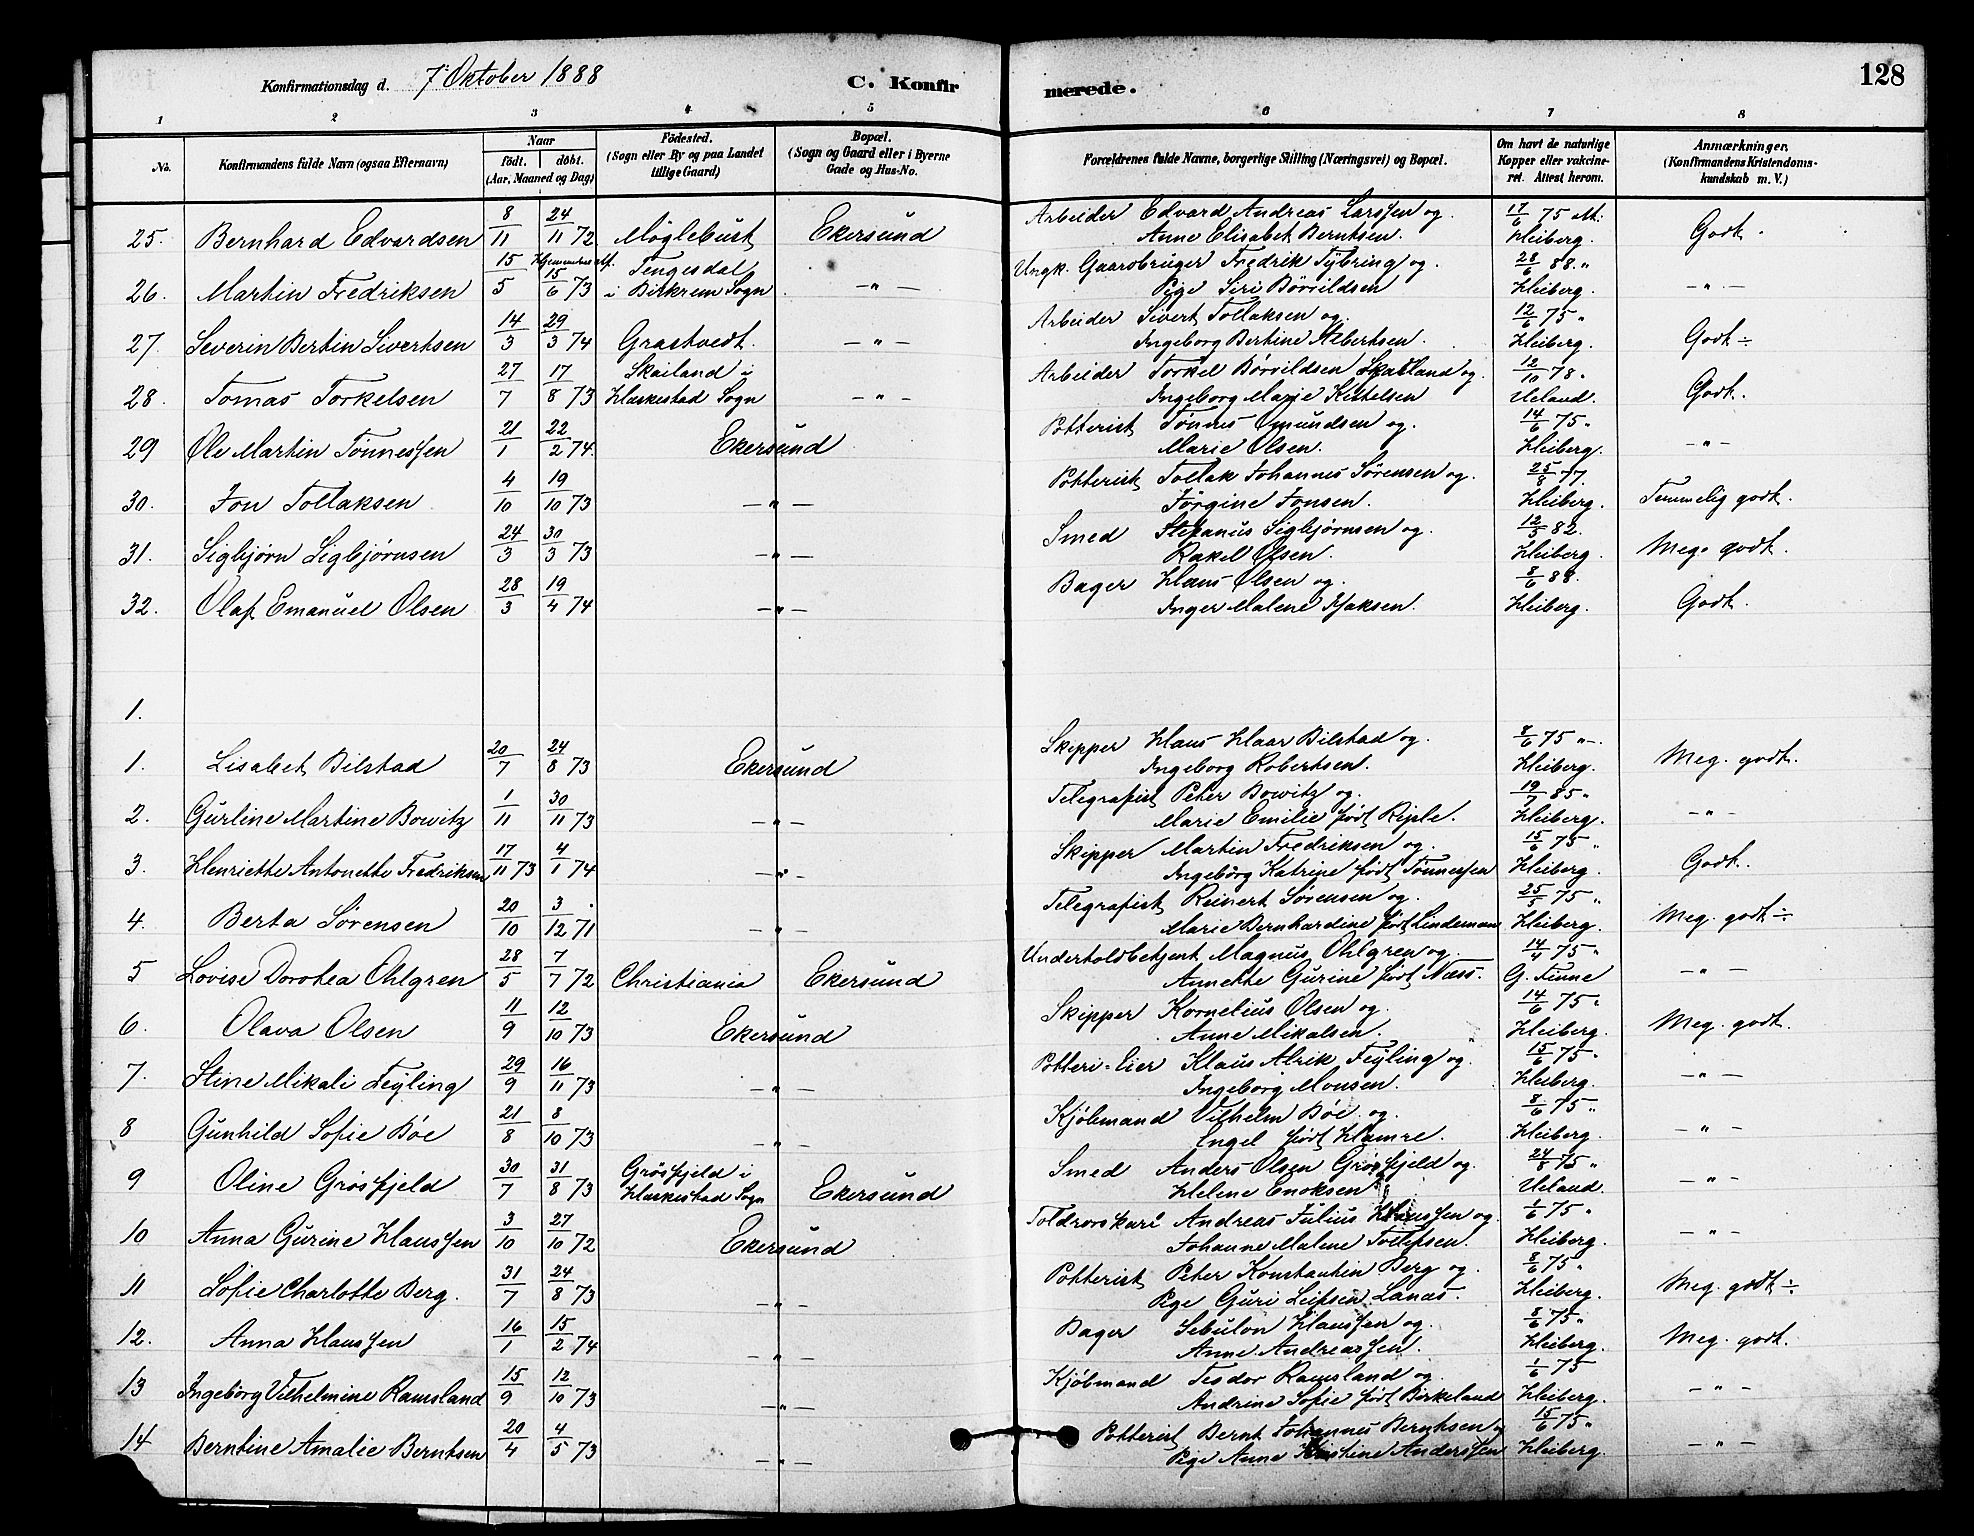 Konfirmationsdag d. 7 Oktober 1888 C. Konfirmerede. 128
1 2 3 4 5 6 7 8
No. Konfirmandens fulde Navn (ogsaa Efternavn) Naar født. døbt. (Aar, Maaned og Dag) Födested. (Sogn eller By og paa Landet tillige Gaard) Bopæl. (Sogn og Gaard eller i Byerne Gade og Hus-No. Forældrenes fulde Navne, borgerlige Stilling (Næringsvei) og Bopæl. Om havt de naturlige Kopper eller vakcineret. Attest herom. Anmærkninger. (Konfirmandens Kristendomskundskab m. V.)
25. Bernhard Edvardsen 8/11 24/11 72 Møglebust Ekersund Arbeider Edvard Andreas Larssen og 17/6 75 Godt.
Anne Elisabet Berntsen. Heiberg.
26. Martin Fredriksen 15/5 15/6 73 Tengesdal Ungk. Gaardbruger Fredrik Tybring og 28/6 88 " - " -
i Birkrem Sogn - " - Pige Siri Børvildsen Heiberg.
27. Severin Bertin Sivertsen 14/3 29/3 74 Grastvedt. - " - Arbeider Sivert Tollaksen og 12/6 75 " Godt ÷
Ingeborg Bertine Albertsen. Heiberg.
28. Tomas Torkelsen 27/7 17/8 73 Skailand i Arbeider Torkel Børvildsen Skailand og 12/10 78 " Godt.
Heskestad Sogn - " - Ingeborg Marie Ketelsen Ueland.
29 Ole Martin Tönnessen 21/1 22/2 74. Ekersund Potterist Tønnes Omundsen og 14/6 75 " - " -
Marie Olsen. Heiberg.
30. Jon Tollaksen 4/10 19/10 73 - " - Potterist Tollak Johannes Sørensen og 25/8 77. Temmelig godt.
Jørgine Jonsen. Heiberg.
31. Sigbjørn Sigbjørnsen 24/3 30/3 73 - " - Smed Stefanus Sigbjørnsen og 12/5 82. Meg. godt.
Rakel Olsen. Heiberg.
32. Olaf Emanuel Olsen 28/3 19/4 74 - " - Bager Hans Olsen og 8/6 88. Godt.
Inger Malene Isaksen. Heiberg.
1.
1. Lisabet Bilstad 20/7 24/8 73 Ekersund Skipper Hans Haar Bilstad og 8/6 75 " Meg. godt.
Ingeborg Robertsen. Heiberg.
2. Gurline Martine Bowitz 1/11 30/11 73 - " - Telegrafist Peter Bowitz og 19/7 85 " - " -
Marie Emilie født Riple. Heiberg.
3. Henriette Antonette Fredriksen 17/11 73 4/1 74 - " - Skipper Martin Fredriksen og 15/6 75 " Godt.
Ingebörg Katrine født Tønnessen Heiberg.
4. Berta Sørensen 20/10 3/12 71 - " - Telegrafist Reinert Sørensen og 25/5 75 " Meg. godt ÷
Marie Bernhardine født Lindeman Heiberg.
5 Lovise Dorotea Ohlgren 28/5 7/7 72 Christiania Ekersund Underholdbetjent Magnus Ohlgren og 14/4 75 " - " -
Annette Gurine født Næss. G. Finne
6. Olava Olsen 11/9 12/10 73 Ekersund Skipper Kornelius Olsen og 14/6 75 " Meg. godt.
Anne Mikalsen. Heiberg.
7. Stine Mikali Feyling 29/9 16/11 73 - " - Potteri-Eier Klaus Alrik Feyling og 15/6 75 " - " -
Ingeborg Monsen. Heiberg.
8 Gunhild Sofie Bøe 21/8 8/10 73 - " - Kjöbmand Vilhelm Bøe og 8/6 75 " - " -
Engel født Hamre. Heiberg.
9 Oline Grøsfjeld 30/7 31/8 73 Grøsfjeld i Smed Anders Olsen Grøsfjeld og 24/8 75 " - " -
Heskestad Sogn Ekersund Helene Enoksen Ueland.
10 Anna Gurine Hanssen 3/10 27/10 72 Ekersund Toldrorskarl Andreas Julius Hanssen og 1/6 75 " - " -
Johanne Malene Tollefsen. Heiberg.
11 Sofie Charlotte Berg. 31/7 24/8 73 - " - Potterist Peter Konstantin Berg og 8/6 75 " Meg. godt ÷
Pige Guri Leifsen Lanas. Heiberg.
12. Anna Hanssen 16/1 15/2 74 - " - Bager Sebulon Hanssen og 8/6 75 " Meg. godt.
Anne Andreassen. Heiberg.
13 Ingebörg Vilhelmine Ramsland 15/9 12/10 73 - " - Kjöbmand Tesdor Ramsland og 1/6 75 - " -
Andrine Sofie født Birkeland Heiberg.
14 Berntine Amalie Berntsen 20/4 4/5 73 - " - Potterist Bernt Johannes Berntsen og 15/6 75 " - " -
Pige Anne Kirstine Anderssen Heiberg.